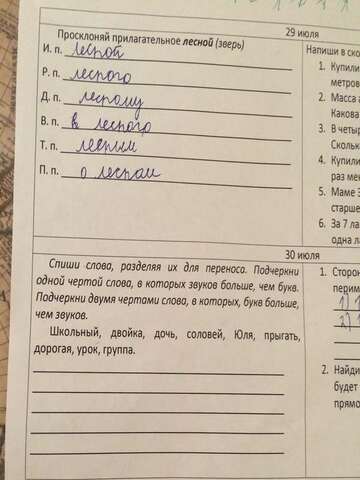 29 июля
Просклоняй прилагательное лесной (зверь)
И. п. лесной
Р. п. лесного
Д. п. лесному
В. п. в лесного
Т. п. лесным
П. п. о лесном
Напиши в ско
1. Купили
метров
2. Масса
Какова
3. В четы
Скольк
4. Купили
раз мен
5. Маме 3
старше
6. За 7 ла
одна л
30 июля
Спиши слова, разделяя их для переноса. Подчеркни
одной чертой слова, в которых звуков больше, чем букв.
Подчеркни двумя чертами слова, в которых, букв больше,
чем звуков.
Школьный, двойка, дочь, соловей, Юля, прыгать,
дорогая, урок, группа.
1. Сторон
перим
1) 1
2) 1
2. Найди
будет
прямо